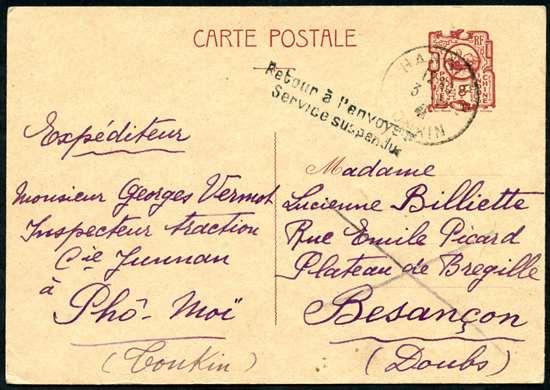 CARTE POSTALE
RF
POSTES
INDOCHINE
Retour à l'envoyeur
Service suspendu
HANOI
TONKIN
Expéditeur
Monsieur Georges Vermot
Inspecteur traction
Cie Yunnan
à
Phô-Moï
(Tonkin)
Madame
Lucienne Billiette
Rue Emile Picard
Plateau de Bregille
Besançon
(Doubs)